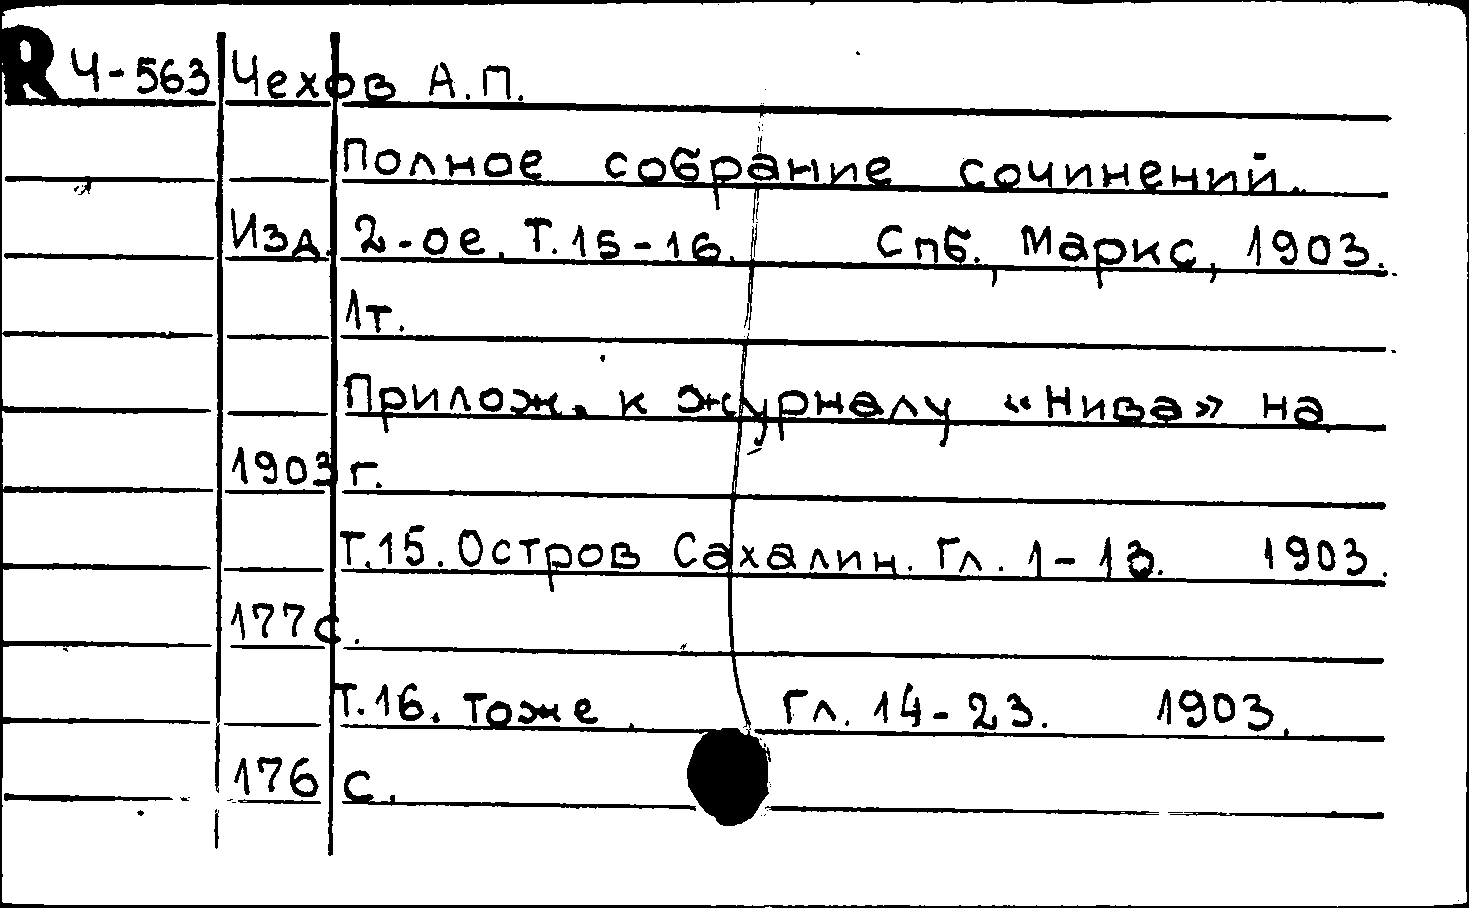 R Ч-563 Чехов А.П.
Полное собрание сочинений.
Изд. 2-ое. Т.15-16. Спб., Маркс, 1903.
1т.
Прилож. к журналу «Нива» на
1903 г.
Т.15. Остров Сахалин. Гл. 1-13. 1903.
177 с.
Т.16. Тоже. Гл. 14-23. 1903.
176 с.